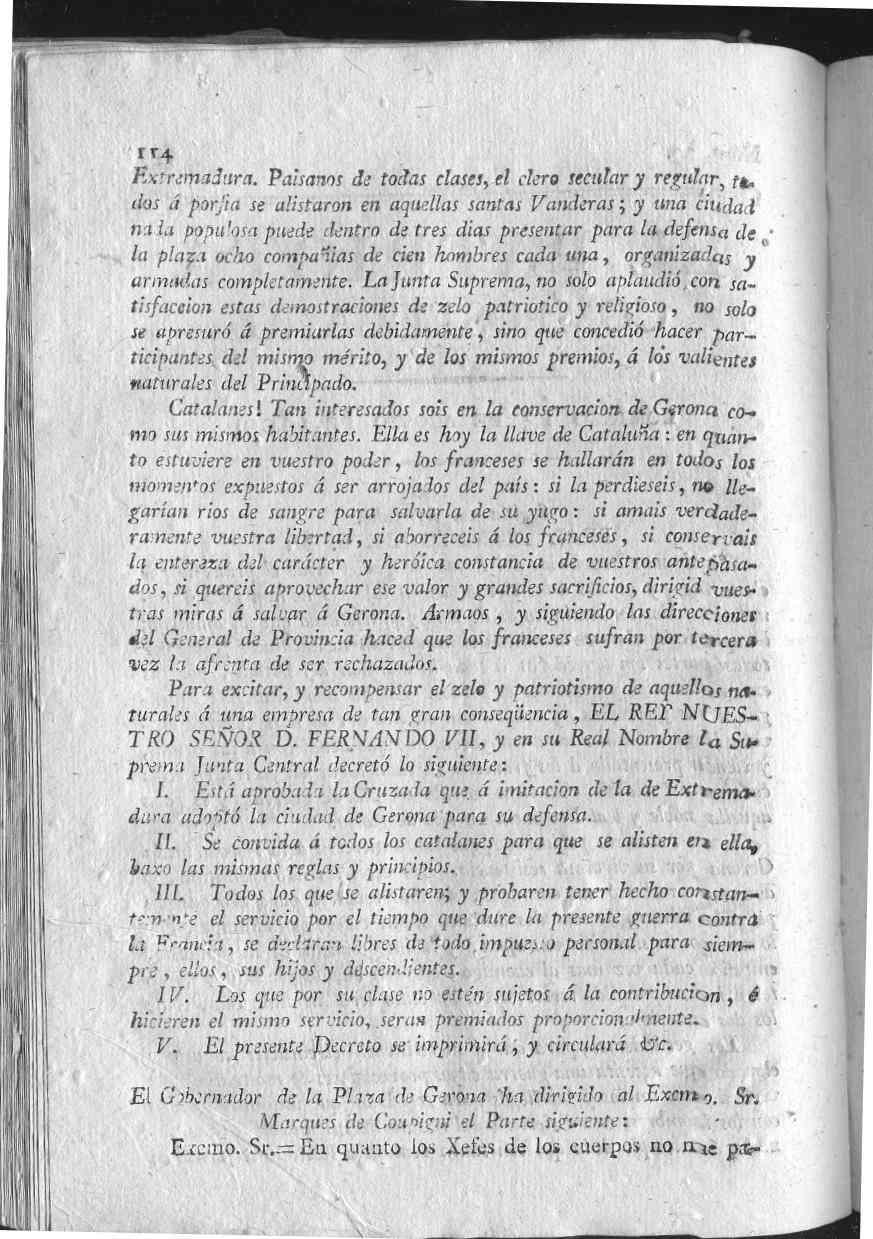 114
Extremadura. Paisanos de todas clases, el clero secular y regular, to-
dos á porfia se alistaron en aquellas santas Vanderas; y una ciudad
nada populosa puede dentro de tres dias presentar para la defensa de
la plaza ocho compañias de cien hombres cada una, organizadas y
armadas completamente. La Junta Suprema, no solo aplaudió con sa-
tisfaccion estas demostraciones de zelo patriotico y religioso, no solo
se apresuró á premiarlas debidamente, sino que concedió hacer par-
ticipantes del mismo mérito, y de los mismos premios, á los valientes
naturales del Principado.
Catalanes! Tan interesados sois en la conservacion de Gerona co-
mo sus mismos habitantes. Ella es hoy la llave de Cataluña: en quan-
to estuviere en vuestro poder, los franceses se hallarán en todos los
momentos expuestos á ser arrojados del país: si la perdieseis, no lle-
garían rios de sangre para salvarla de su yugo: si amais verdade-
ramente vuestra libertad, si aborreceis á los franceses, si conservais
la entereza del carácter y heróica constancia de vuestros antepasa-
dos, si quereis aprovechar ese valor y grandes sacrificios, dirigid vues-
tras miras á salvar á Gerona. Armaos, y siguiendo las direcciones
del General de Provincia haced que los franceses sufran por tercera
vez la afrenta de ser rechazados.
Para excitar, y recompensar el zelo y patriotismo de aquellos na-
turales á una empresa de tan gran conseqüencia, EL REY NUES-
TRO SEÑOR D. FERNANDO VII, y en su Real Nombre la Su-
prema Junta Central decretó lo siguiente:
I. Está aprobada la Cruzada que á imitacion de la de Extrema-
dura adoptó la ciudad de Gerona para su defensa.
II. Se convida á todos los catalanes para que se alisten en ella,
baxo las mismas reglas y principios.
III. Todos los que se alistaren, y probaren tener hecho constan-
temente el servicio por el tiempo que dure la presente guerra contra
la Francia, se declaran libres de todo impuesto personal para siem-
pre, ellos, sus hijos y descendientes.
IV. Los que por su clase no estén sujetos á la contribucion, é
hicieren el mismo servicio, seran premiados proporcionalmente.
V. El presente Decreto se imprimirá, y circulará &c.
El Gobernador de la Plaza de Gerona ha dirigido al Excmo. Sr.
Marques de Coupigni el Parte siguiente:
Excmo. Sr.=En quanto los Xefes de los cuerpos no me pa-